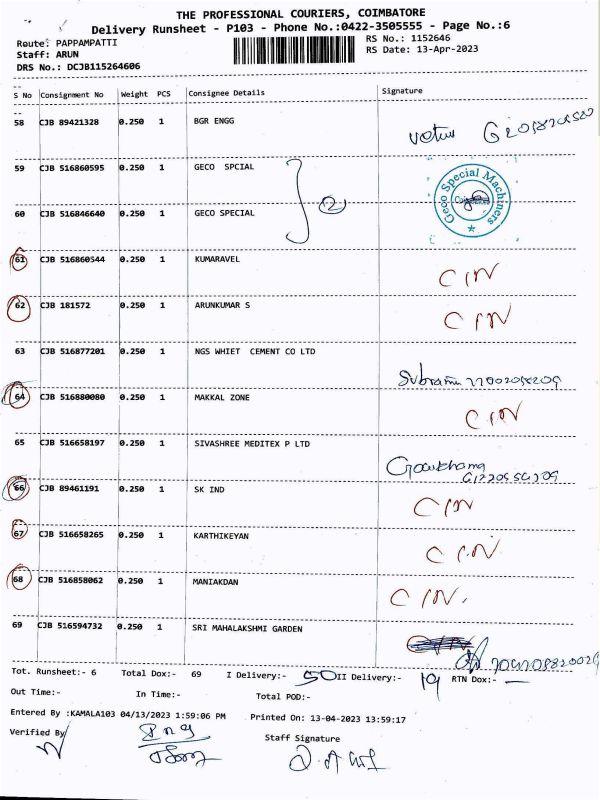 THE PROFESSIONAL COURIERS, COIMBATORE
Delivery Runsheet - P103 - Phone No.:0422-3505555 - Page No.:6
Route: PAPPAMPATTI RS No.: 1152646
Staff: ARUN RS Date: 13-Apr-2023
DRS No.: DCJB115264606
S No Consignment No Weight PCS Consignee Details Signature
58 CJB 89421328 0.250 1 BGR ENGG
59 CJB 516860595 0.250 1 GECO SPCIAL
Geco Special Machiners
2
60 CJB 516846640 0.250 1 GECO SPECIAL
61 CJB 516860544 0.250 1 KUMARAVEL CIN
62 CJB 181572 0.250 1 ARUNKUMAR S CIN
63 CJB 516877201 0.250 1 NGS WHIET CEMENT CO LTD
64 CJB 516880080 0.250 1 MAKKAL ZONE CIN
65 CJB 516658197 0.250 1 SIVASHREE MEDITEX P LTD
66 CJB 89461191 0.250 1 SK IND CIN
67 CJB 516658265 0.250 1 KARTHIKEYAN CIN
68 CJB 516858062 0.250 1 MANIAKDAN CIN.
69 CJB 516594732 0.250 1 SRI MAHALAKSHMI GARDEN
Tot. Runsheet:- 6 Total Dox:- 69 I Delivery:- 50 II Delivery:- 19 RTN Dox:- —
Out Time:- In Time:- Total POD:-
Entered By :KAMALA103 04/13/2023 1:59:06 PM Printed On: 13-04-2023 13:59:17
Verified By Staff Signature